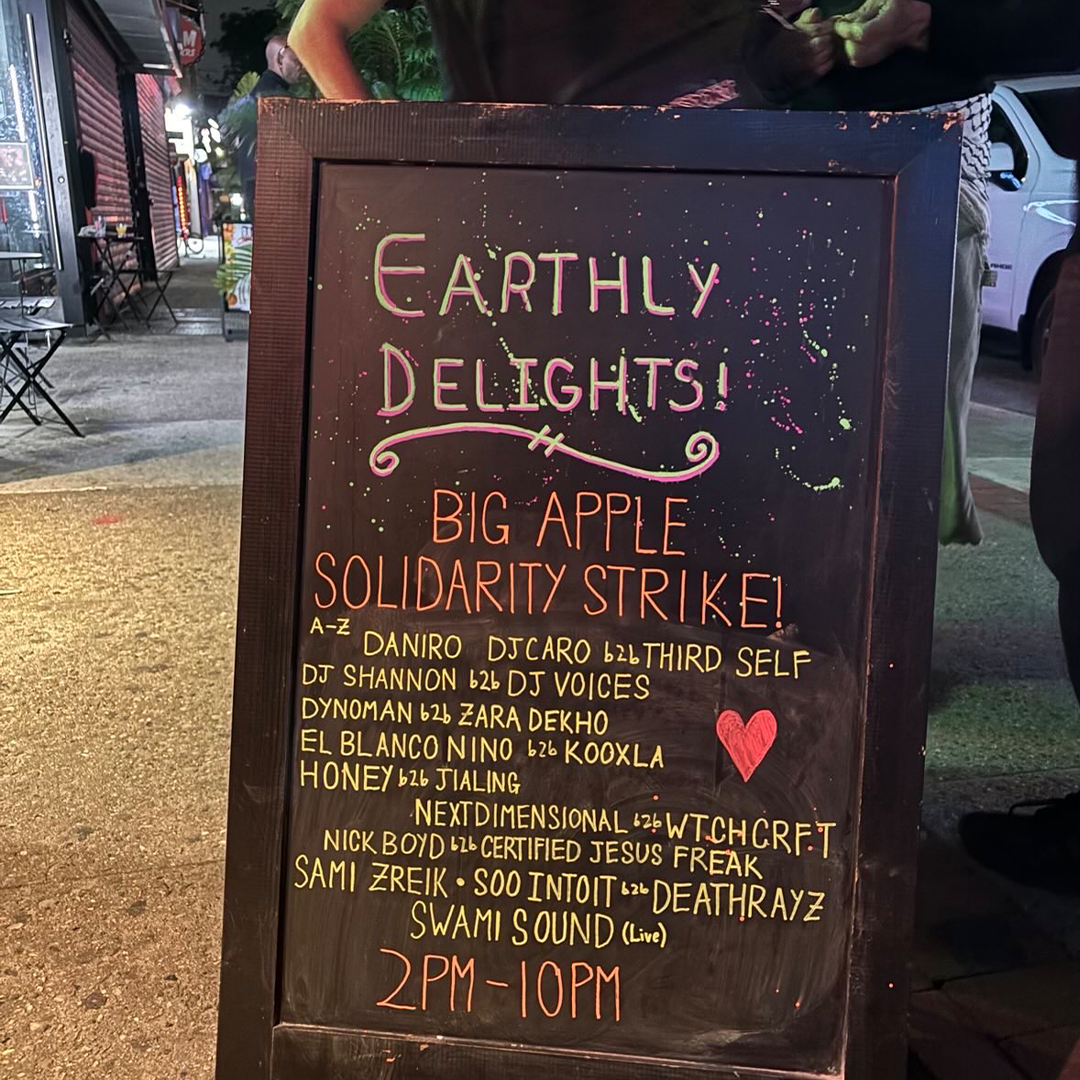 EARTHLY
DELIGHTS!
BIG APPLE
SOLIDARITY STRIKE!
A-Z
DANIRO DJ CARO b2b THIRD SELF
DJ SHANNON b2b DJ VOICES
DYNOMAN b2b ZARA DEKHO
EL BLANCO NINO b2b KOOXLA
HONEY b2b JIALING
NEXTDIMENSIONAL b2b WTCHCRFT
NICK BOYD b2b CERTIFIED JESUS FREAK
SAMI ZREIK • SOO INTOIT b2b DEATHRAYZ
SWAMI SOUND (Live)
2PM-10PM